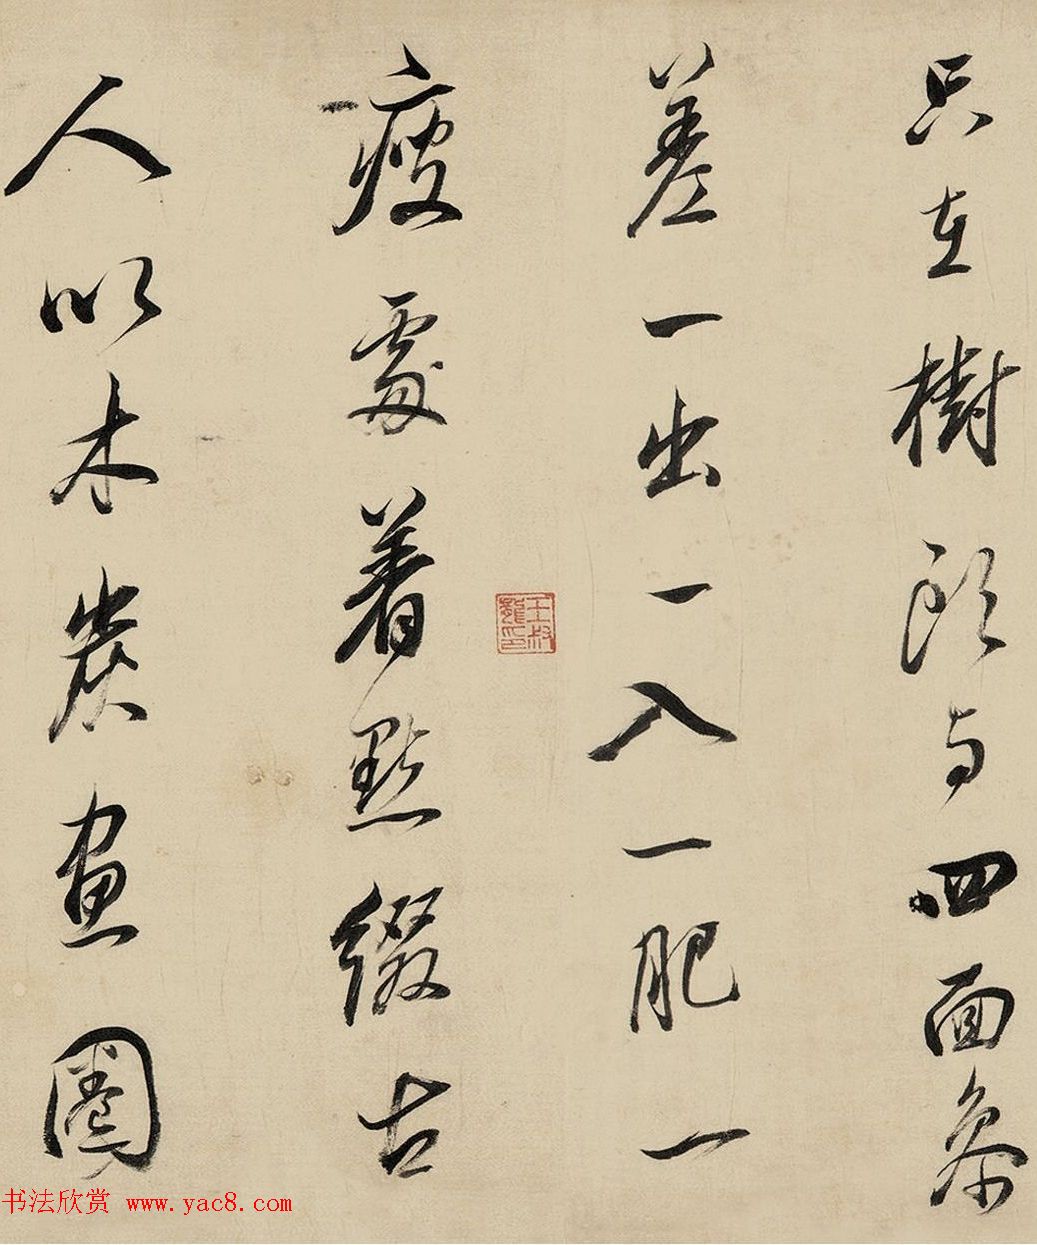 只在樹頭与四面參
差一出一入一肥一
瘦處着點綴古
人以木炭畫圈
王叔龍印
书法欣赏 www.yac8.com